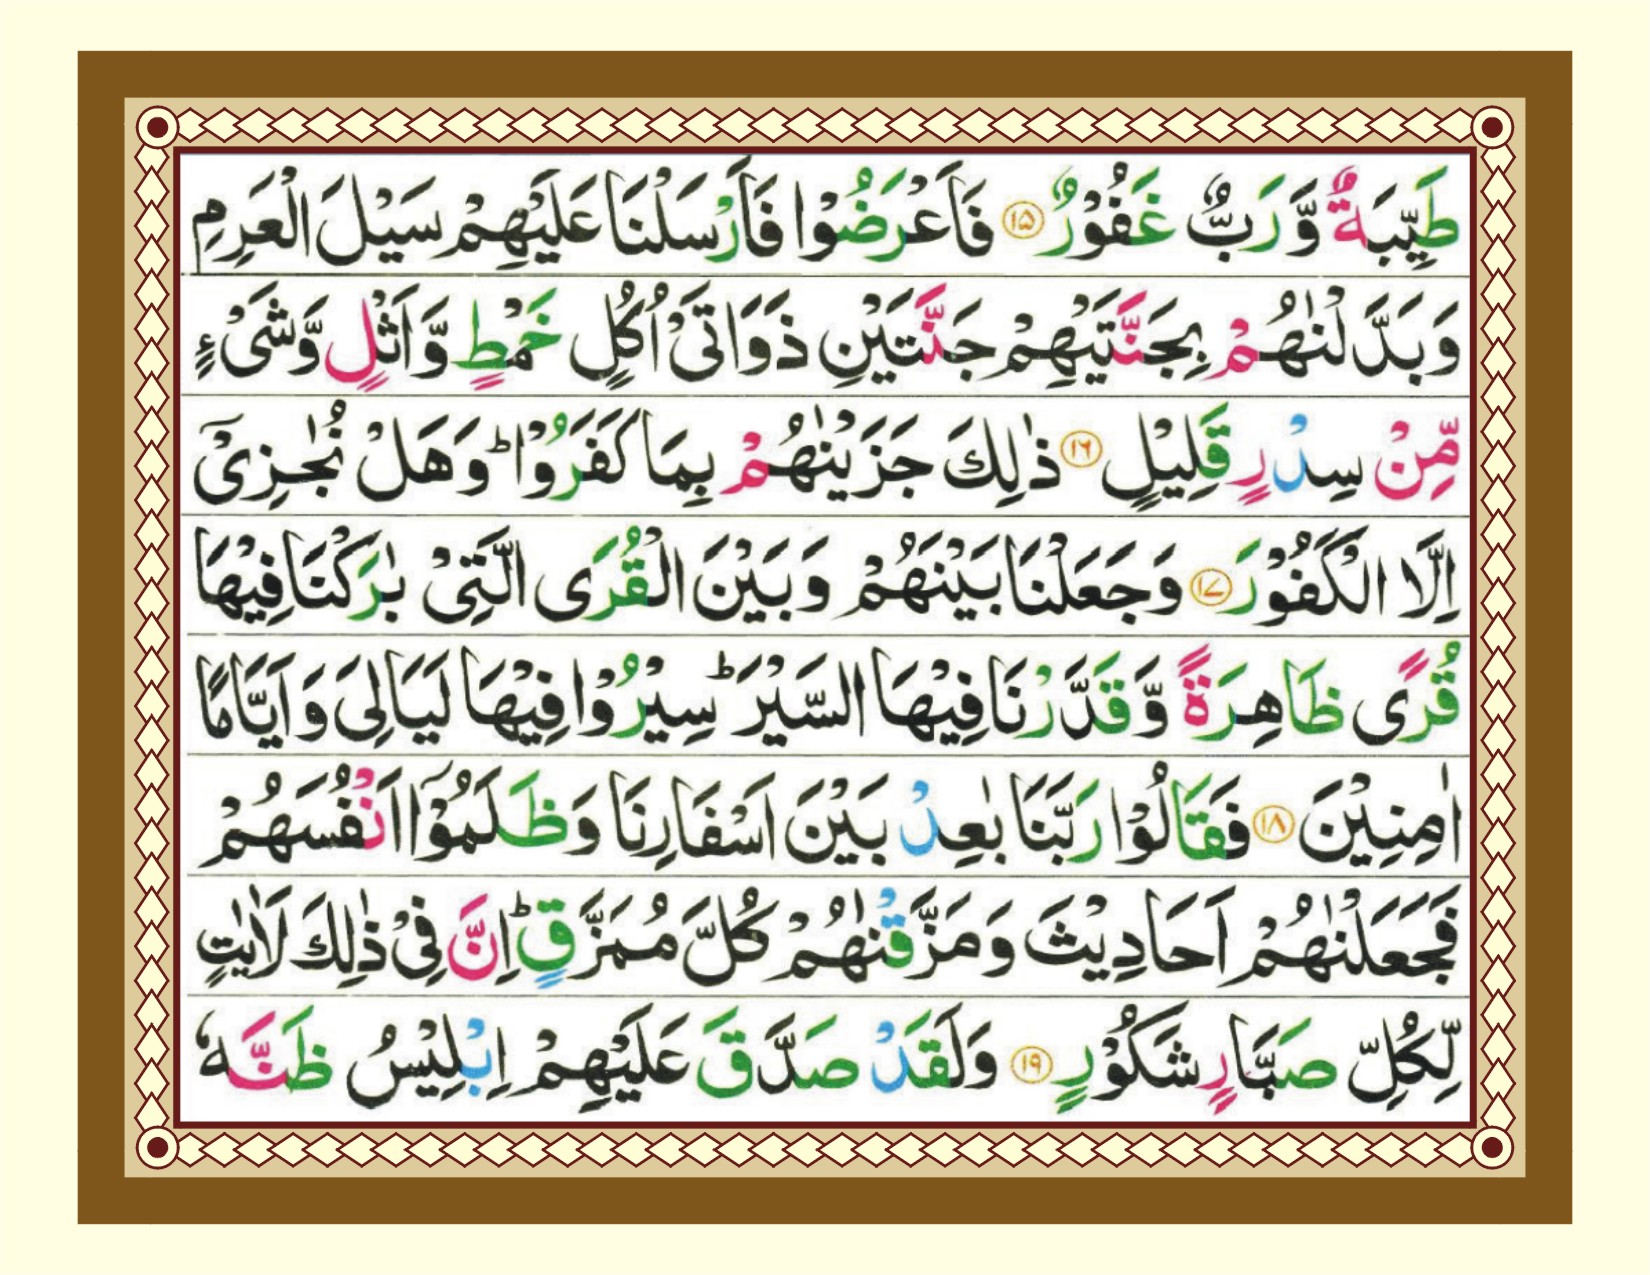 طَيِّبَةٌ وَّرَبٌّ غَفُوْرٌ ﴿۱۵﴾ فَاَعْرَضُوْا فَاَرْسَلْنَا عَلَيْهِمْ سَيْلَ الْعَرِمِ
وَبَدَّلْنٰهُمْ بِجَنَّتَيْهِمْ جَنَّتَيْنِ ذَوَاتَىْ اُكُلٍ خَمْطٍ وَّاَثْلٍ وَّشَىْءٍ
مِّنْ سِدْرٍ قَلِيْلٍ ﴿۱۶﴾ ذٰلِكَ جَزَيْنٰهُمْ بِمَا كَفَرُوْا ؕ وَهَلْ نُجٰزِىْۤ
اِلَّا الْكَفُوْرَ ﴿۱۷﴾ وَجَعَلْنَا بَيْنَهُمْ وَبَيْنَ الْقُرَى الَّتِىْ بٰرَكْنَا فِيْهَا
قُرًى ظَاهِرَةً وَّقَدَّرْنَا فِيْهَا السَّيْرَ ؕ سِيْرُوْا فِيْهَا لَيَالِىَ وَاَيَّامًا
اٰمِنِيْنَ ﴿۱۸﴾ فَقَالُوْا رَبَّنَا بٰعِدْ بَيْنَ اَسْفَارِنَا وَظَلَمُوْۤا اَنْفُسَهُمْ
فَجَعَلْنٰهُمْ اَحَادِيْثَ وَمَزَّقْنٰهُمْ كُلَّ مُمَزَّقٍ ؕ اِنَّ فِىْ ذٰلِكَ لَاٰيٰتٍ
لِّكُلِّ صَبَّارٍ شَكُوْرٍ ﴿۱۹﴾ وَلَقَدْ صَدَّقَ عَلَيْهِمْ اِبْلِيْسُ ظَنَّهٗ